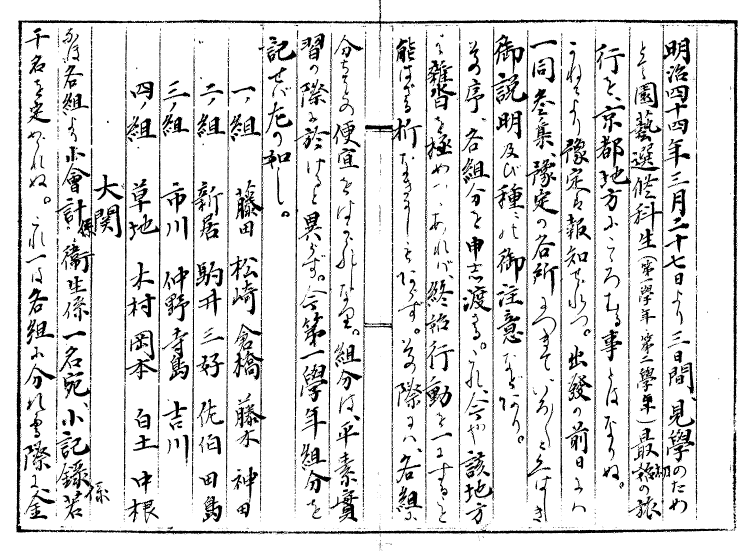 明治四十四年三月二十七日より三日間、見學のため
とて園藝選修科生（第一學年・第二學年）最初の旅
行を、京都地方にこゝろむる事とはなりぬ。
かねてより豫定も報知せられつ。出發の前日には
一同参集、豫定の各所につきていろ〳〵とくはしき
御説明及び種々の御注意などあり。
その序、各組分を申し渡さる。これ今や該地方
は雜沓を極めつゝあれば、終始行動を一にすること
能はざる折なきにしもあらず。その際には、各組
分ちその便宜をはかるなり。組分は、平素實
習の際に於けると異らず。今第一學年組分を
記せば左の如し。
一ノ組　藤田　松崎　倉橋　藤木　神田
二ノ組　新居　駒井　三好　佐伯　田島
三ノ組　市川　仲野　寺島　吉川
四ノ組　草地　木村　岡本　白土　中根
大関
なほ各組より小會計係、衞生係一名宛、小記録係若
干名を定められぬ。これ一は各組に分れし際に金